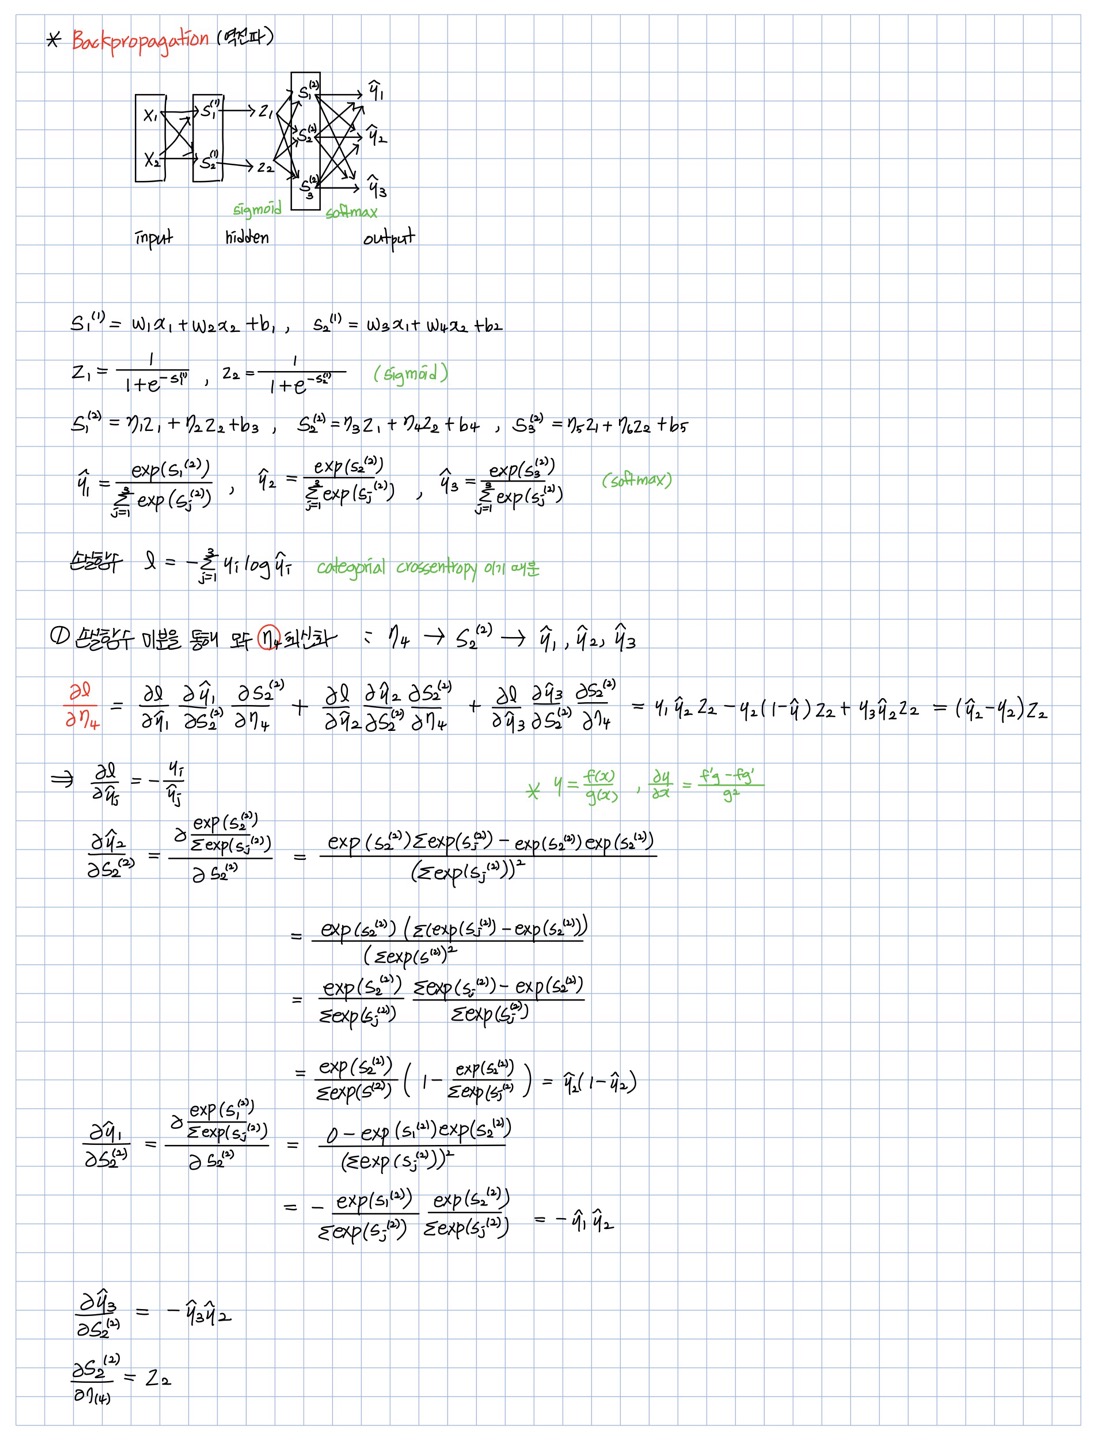 * Backpropagation (역전파)
x₁ S₁⁽¹⁾ z₁ S₁⁽²⁾ ŷ₁
x₂ S₂⁽¹⁾ z₂ S₂⁽²⁾ ŷ₂
S₃⁽²⁾ ŷ₃
sigmoid softmax
input hidden output
S₁⁽¹⁾ = w₁x₁ + w₂x₂ + b₁ , S₂⁽¹⁾ = w₃x₁ + w₄x₂ + b₂
z₁ = 1/(1+e^(-s₁⁽¹⁾)) , z₂ = 1/(1+e^(-s₂⁽¹⁾)) (sigmoid)
S₁⁽²⁾ = η₁z₁ + η₂z₂ + b₃ , S₂⁽²⁾ = η₃z₁ + η₄z₂ + b₄ , S₃⁽²⁾ = η₅z₁ + η₆z₂ + b₅
ŷ₁ = exp(s₁⁽²⁾)/Σ_{j=1}^{3} exp(s_j⁽²⁾) , ŷ₂ = exp(s₂⁽²⁾)/Σ_{j=1}^{3} exp(s_j⁽²⁾) , ŷ₃ = exp(s₃⁽²⁾)/Σ_{j=1}^{3} exp(s_j⁽²⁾) (softmax)
손실함수 l = -Σ_{j=1}^{3} y_i log ŷ_i categorial crossentropy 이기 때문
① 손실함수 미분을 통해 모수 η₄ 최신화 : η₄ → S₂⁽²⁾ → ŷ₁, ŷ₂, ŷ₃
∂l/∂η₄ = ∂l/∂ŷ₁ ∂ŷ₁/∂S₂⁽²⁾ ∂S₂⁽²⁾/∂η₄ + ∂l/∂ŷ₂ ∂ŷ₂/∂S₂⁽²⁾ ∂S₂⁽²⁾/∂η₄ + ∂l/∂ŷ₃ ∂ŷ₃/∂S₂⁽²⁾ ∂S₂⁽²⁾/∂η₄ = y₁ŷ₂z₂ - y₂(1-ŷ)z₂ + y₃ŷ₂z₂ = (ŷ₂-y₂)z₂
⇒ ∂l/∂ŷ_j = - y_i/ŷ_j * y = f(x)/g(x) , ∂y/∂x = (f'g - fg')/g²
∂ŷ₂/∂S₂⁽²⁾ = ∂(exp(s₂⁽²⁾)/Σexp(s_j⁽²⁾))/∂S₂⁽²⁾ = (exp(s₂⁽²⁾)Σexp(s_j⁽²⁾) - exp(s₂⁽²⁾)exp(s₂⁽²⁾))/(Σexp(s_j⁽²⁾))²
= exp(s₂⁽²⁾)(Σ(exp(s_j⁽²⁾) - exp(s₂⁽²⁾))/(Σexp(s⁽²⁾)²
= exp(s₂⁽²⁾)/Σexp(s_j⁽²⁾) (Σexp(s_j⁽²⁾) - exp(s₂⁽²⁾))/Σexp(s_j⁽²⁾)
= exp(s₂⁽²⁾)/Σexp(s⁽²⁾) (1 - exp(s₂⁽²⁾)/Σexp(s_j⁽²⁾)) = ŷ₂(1-ŷ₂)
∂ŷ₁/∂S₂⁽²⁾ = ∂(exp(s₁⁽²⁾)/Σexp(s_j⁽²⁾))/∂S₂⁽²⁾ = (0 - exp(s₁⁽²⁾)exp(s₂⁽²⁾))/(Σexp(s_j⁽²⁾))²
= - exp(s₁⁽²⁾)/Σexp(s_j⁽²⁾) exp(s₂⁽²⁾)/Σexp(s_j⁽²⁾) = -ŷ₁ŷ₂
∂ŷ₃/∂S₂⁽²⁾ = -ŷ₃ŷ₂
∂S₂⁽²⁾/∂η₍₄₎ = z₂